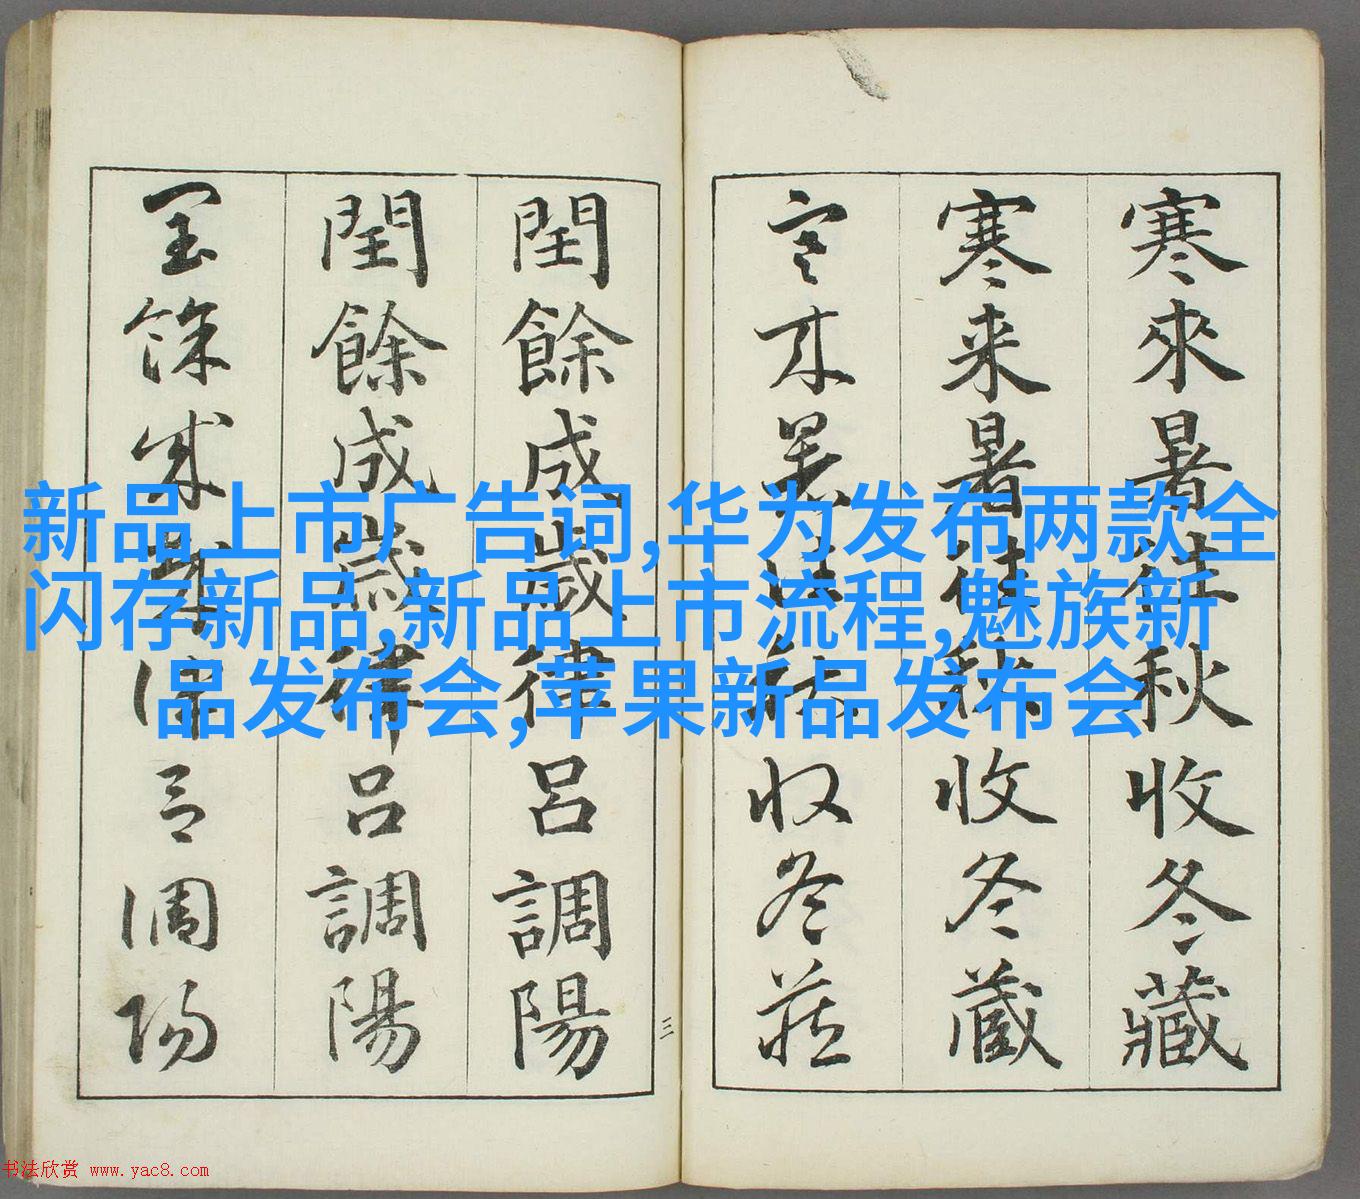 寒來暑往秋收冬藏
寒来暑往秋收冬藏
寒来暑往秋收冬藏
閏餘成歲律呂調陽
閏餘成歲律呂調陽
閏餘成歲律呂調陽
三
新品上市广告词,华为发布两款全
闪存新品,新品上市流程,魅族新
品发布会,苹果新品发布会
书法欣赏 www.yac8.com